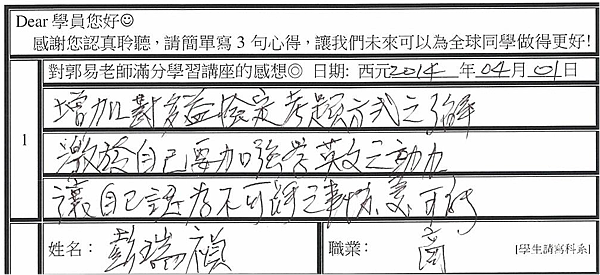 Dear 學員您好☺
感謝您認真聆聽，請簡單寫 3 句心得，讓我們未來可以為全球同學做得更好!
對郭易老師滿分學習講座的感想◎ 日期: 西元2014 年04月01日
1
增加對多益檢定考題方式之了解
激於自己要加強學英文之動力
讓自己認為不可能之事情 可能
姓名： 彭瑞禎
職業： 商
[學生請寫科系]